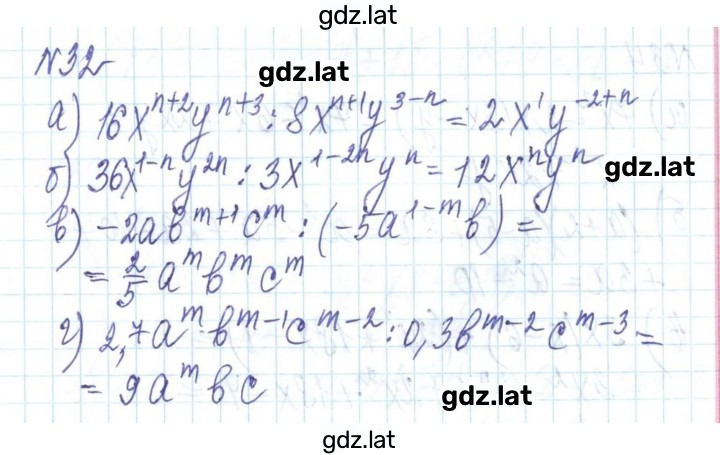 gdz.lat
N32
gdz.lat
а) 16x^{n+2}y^{n+3} : 8x^{n+1}y^{3-n} = 2x^{1}y^{-2+n}
б) 36x^{1-n}y^{2n} : 3x^{1-2n}y^{n} = 12x^{n}y^{n}
gdz.lat
в) -2ab^{m+1}c^{m} : (-5a^{1-m}b) =
= \frac{2}{5} a^{m}b^{m}c^{m}
г) 2,7a^{m}b^{m-1}c^{m-2} : 0,3b^{m-2}c^{m-3} =
= 9a^{m}bc
gdz.lat
gdz.lat